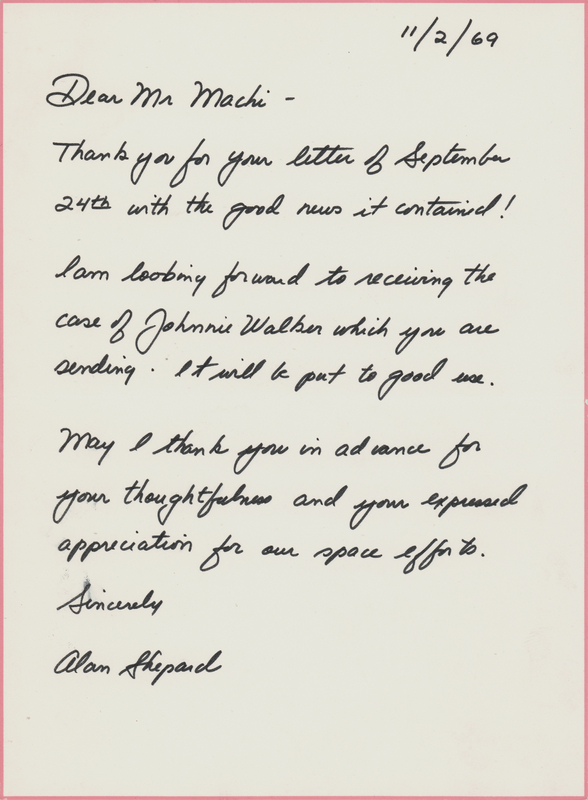 11/2/69
Dear Mr Machi -
Thank you for your letter of September
24th with the good news it contained!
I am looking forward to receiving the
case of Johnnie Walker which you are
sending. It will be put to good use.
May I thank you in advance for
your thoughtfulness and your expressed
appreciation for our space efforts.
Sincerely
Alan Shepard